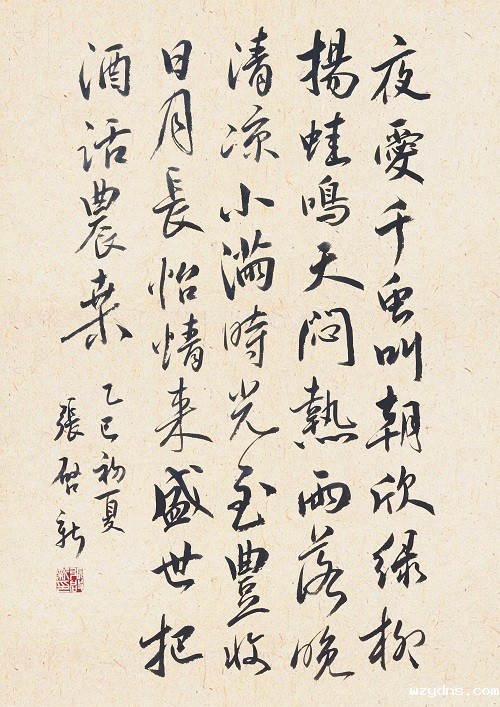 夜愛千虫叫朝欣绿柳
揚蛙鳴天悶熱雨落晚
清凉小滿時光至豐收
日月長怡情来盛世把
酒話農桒
乙巳初夏
張啓新
www.wzydns.com